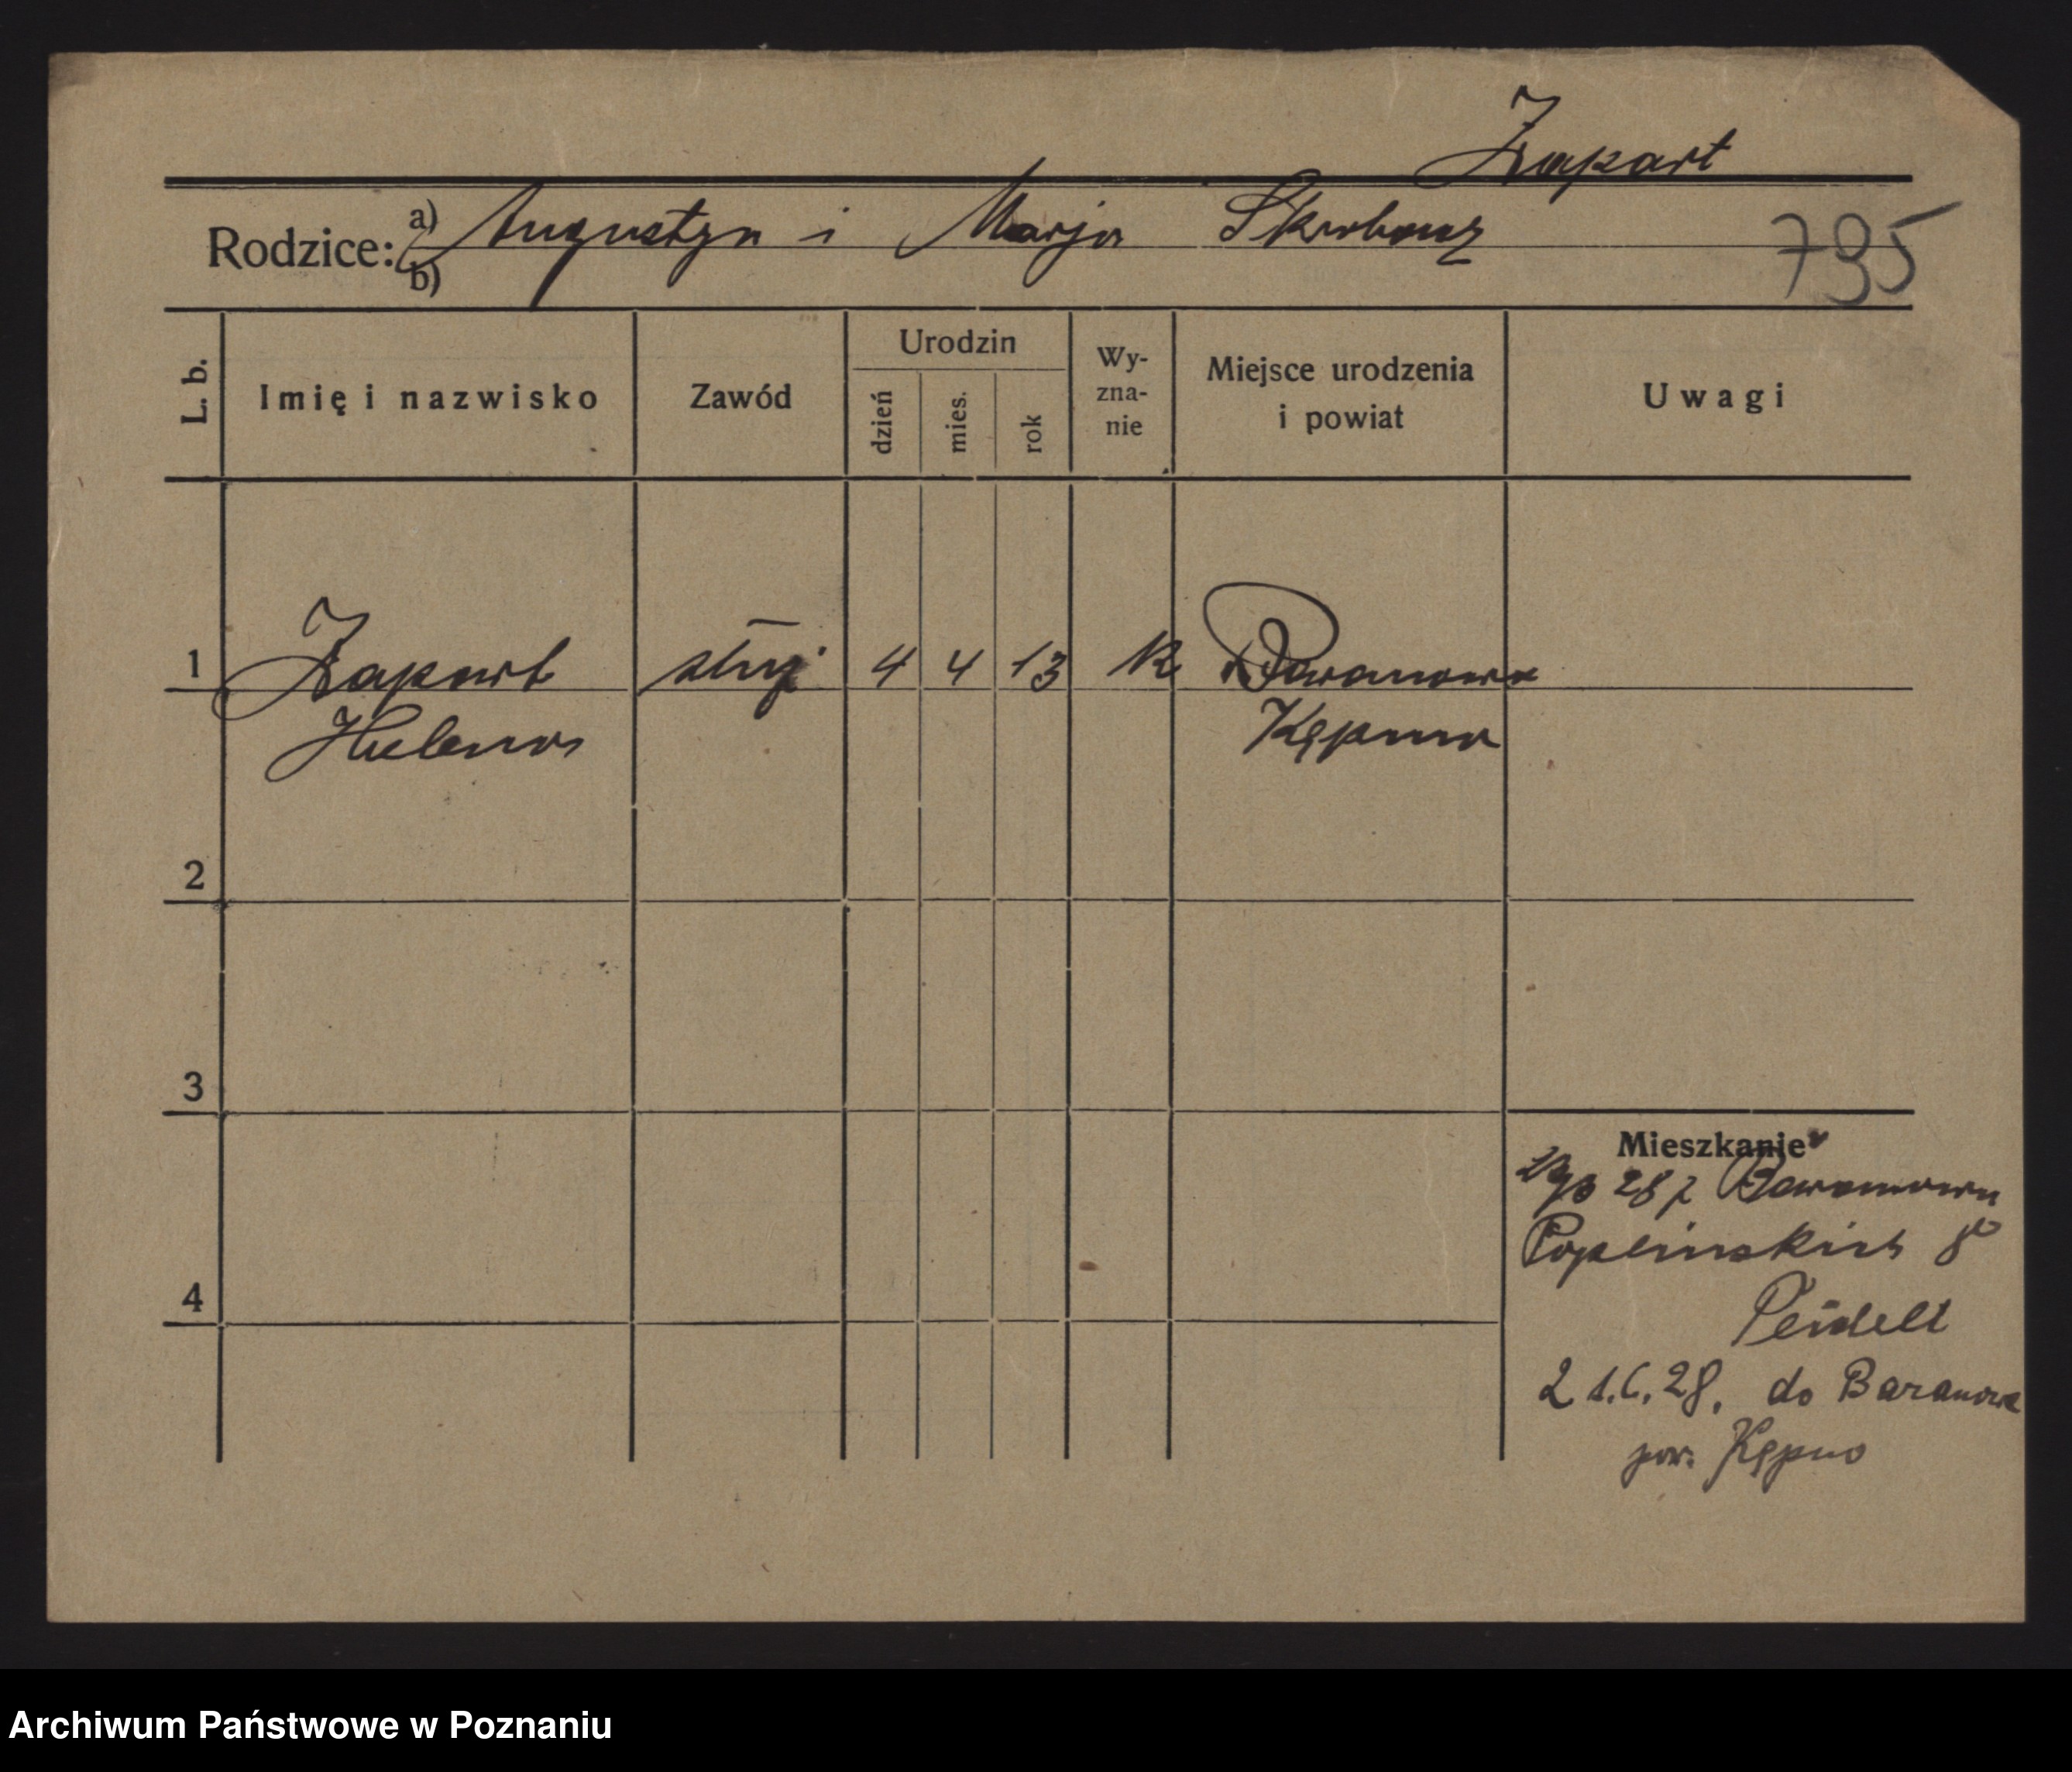 Zapart
Rodzice: a) Augustyn i Marja
b)
795
L. b.
Imię i nazwisko
Zawód
Urodzin
dzień
mies.
rok
Wy-
zna-
nie
Miejsce urodzenia
i powiat
Uwagi
1 Zapart służ. 4 4 13 K Baranowo
Helena Kępno
2
3
4
Mieszkanie
28 z Baranowa
Poplinskich 8
21.6.28. do Baranowa
pow. Kępno
Archiwum Państwowe w Poznaniu